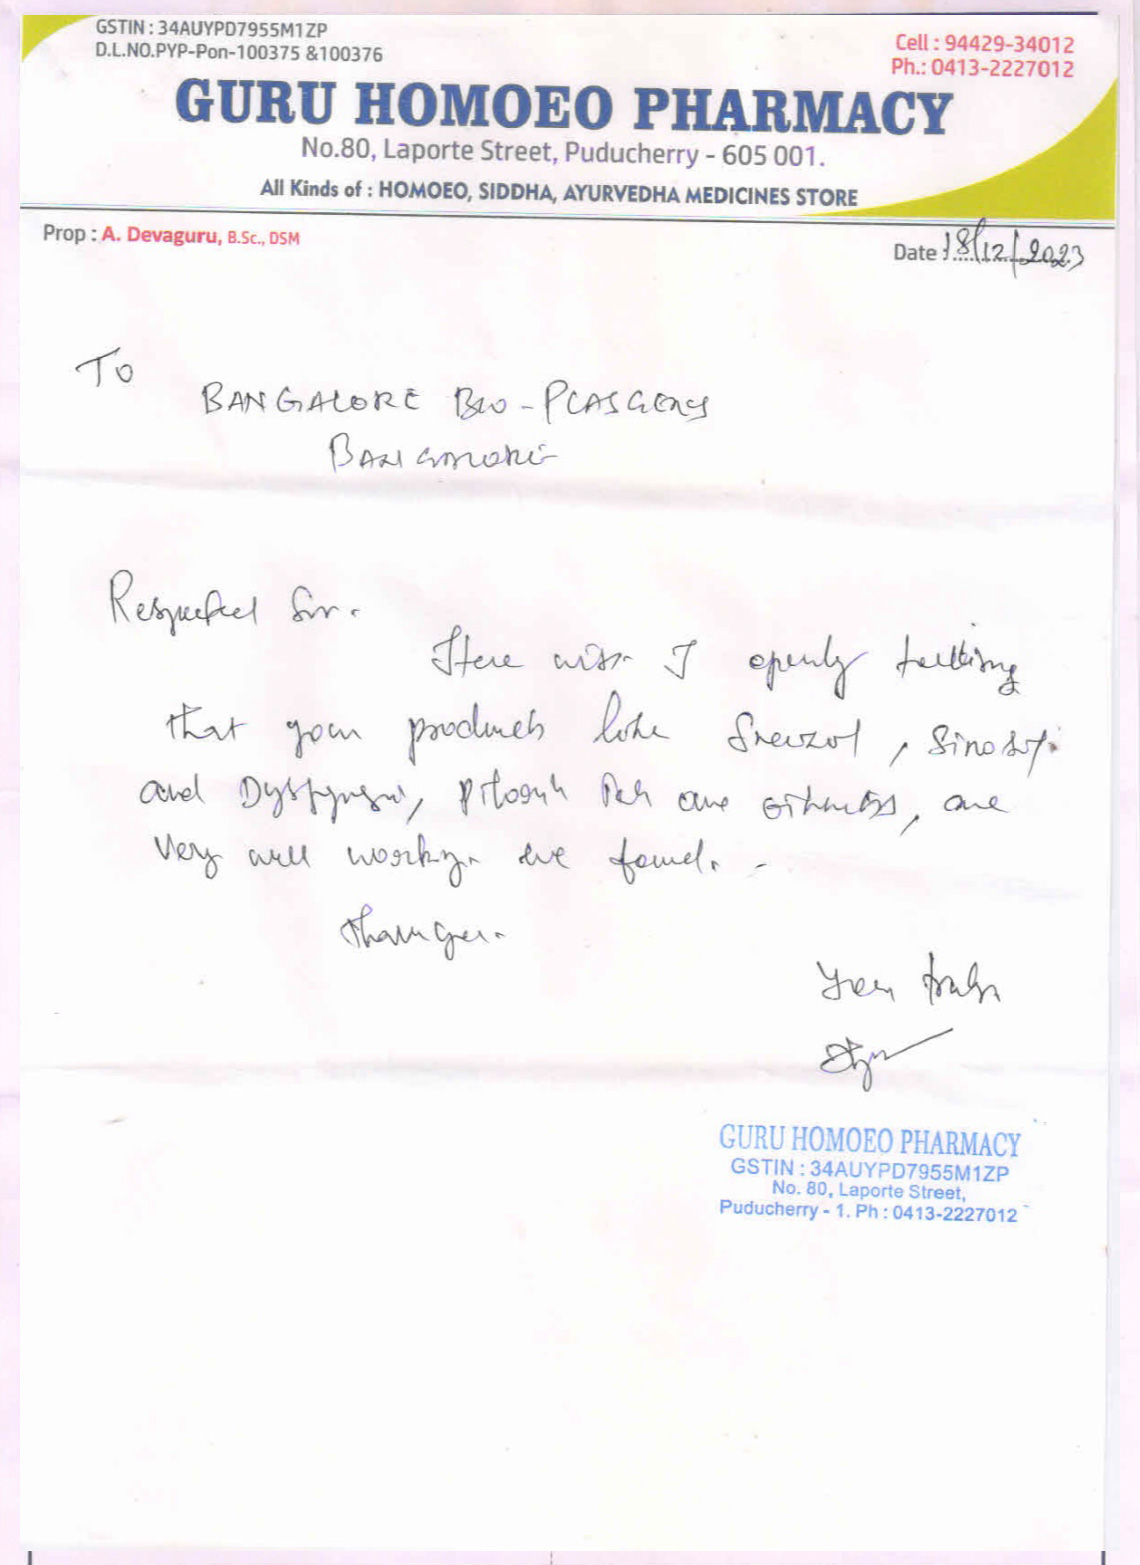 GSTIN : 34AUYPD7955M1ZP
D.L.NO.PYP-Pon-100375 &100376
Cell : 94429-34012
Ph.: 0413-2227012
GURU HOMOEO PHARMACY
No.80, Laporte Street, Puducherry - 605 001.
All Kinds of : HOMOEO, SIDDHA, AYURVEDHA MEDICINES STORE
Prop : A. Devaguru, B.Sc., DSM
Date : 18/12/2023
To
BANGALORE Bio-
BANGALORE
Respected Sir.
Here I openly telling
that your products like , Sinosof
and , are , are
Very well working we found. -
Thank you.
Yours truly
GURU HOMOEO PHARMACY
GSTIN : 34AUYPD7955M1ZP
No. 80, Laporte Street,
Puducherry - 1. Ph : 0413-2227012